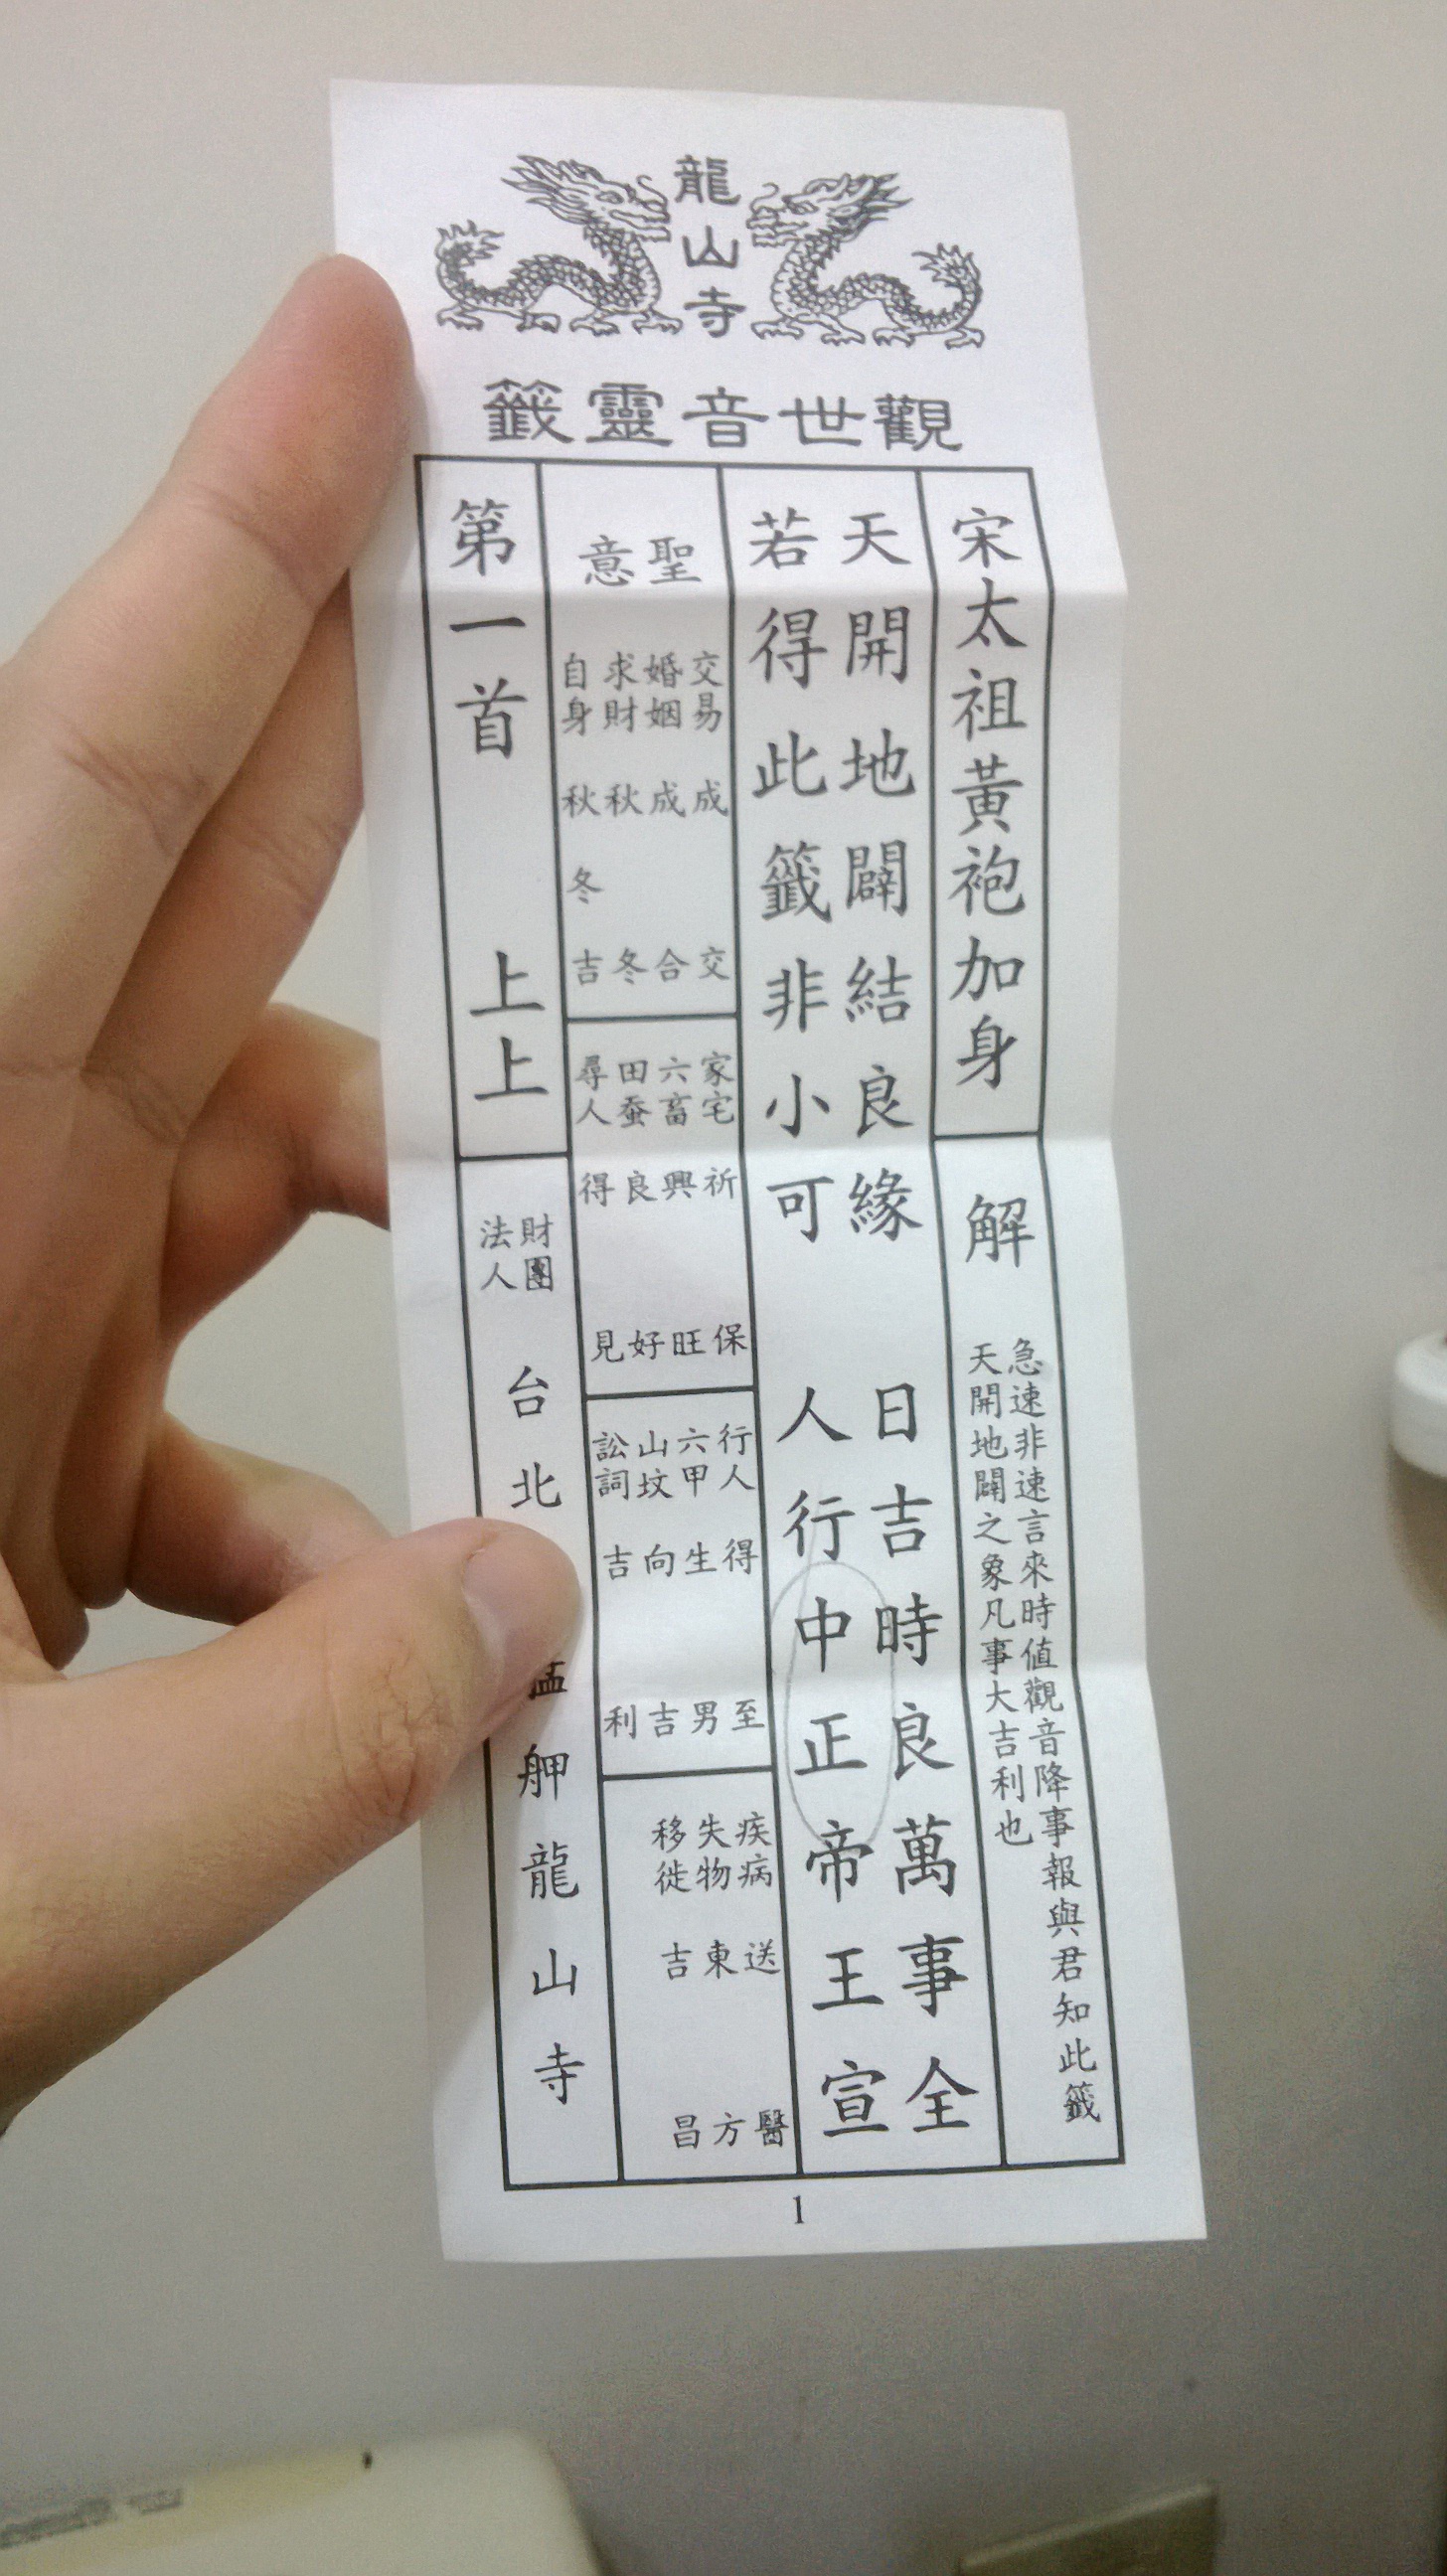 龍山寺
觀世音靈籤
宋太祖黃袍加身
解
急速非速言來時值觀音降事報與君知此籤
天開地闢之象凡事大吉利也
天開地闢結良緣 日吉時良萬事全
若得此籤非小可 人行中正帝王宣
聖意
交易成交
婚姻成合
求財秋冬
自身秋冬吉
家宅祈保
六畜興旺
田蚕良好
尋人得見
行人得至
六甲生男
山坟向吉
訟詞吉利
疾病送醫
失物東方
移徙吉昌
第一首 上上
財團法人
台北艋舺龍山寺
1